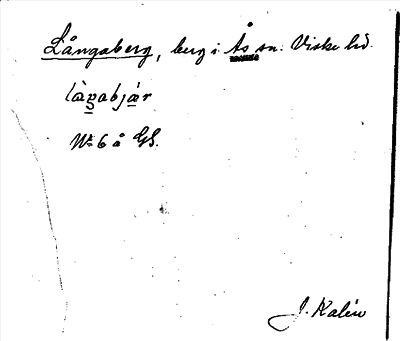 Långaberg, berg i Ås sn. Viske hd.
làŋabjær
Nr 6 å GS.
J. Kalén